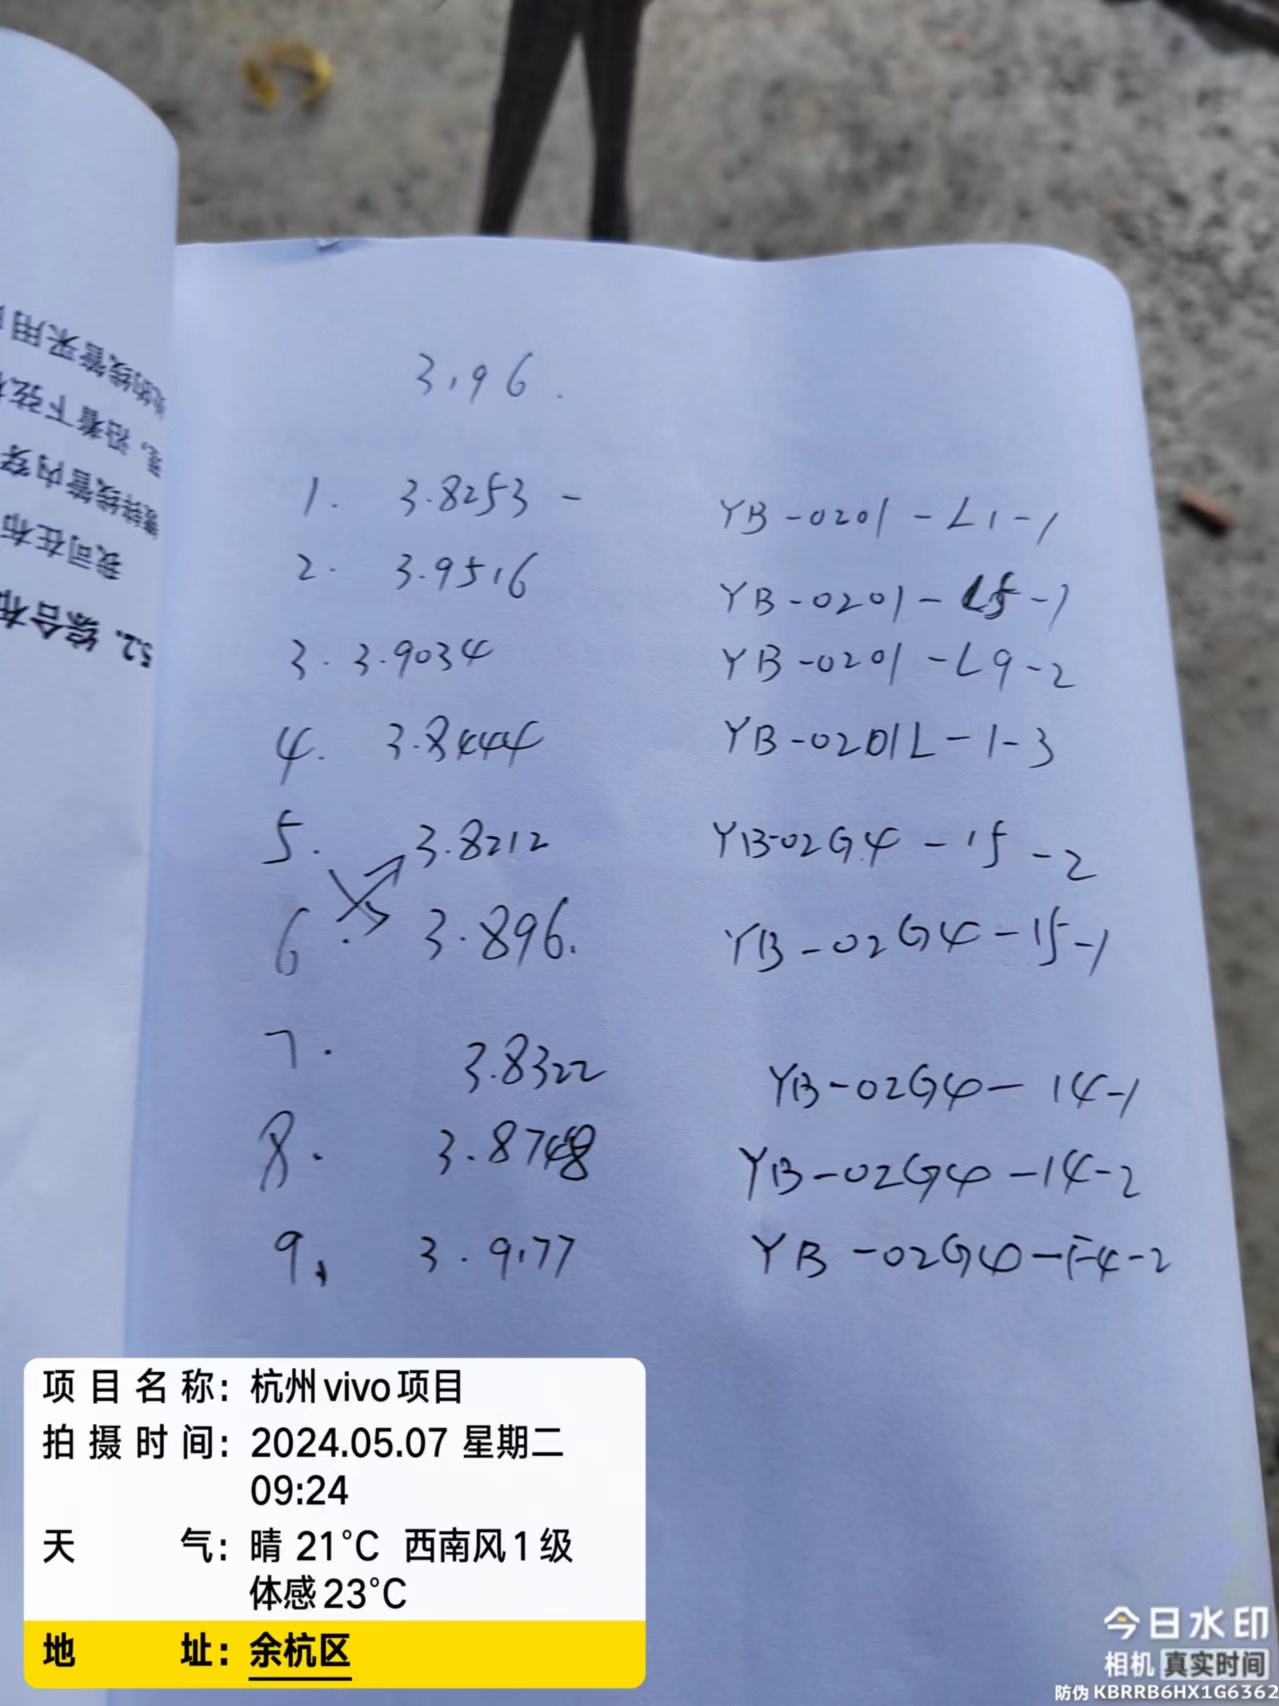 处的线管采用
理，沿着下弦
镀锌线管内穿
我司在布
5.2. 综合布
3.96.
1. 3.8253 - YB-0201-L1-1
2. 3.9516 YB-0201-L5-1
3. 3.9034 YB-0201-L9-2
4. 3.8444 YB-0201L-1-3
5. 3.8212 YB-02G4-15-2
6. 3.896. YB-02G4-15-1
7. 3.8322 YB-02G4-14-1
8. 3.8748 YB-02G4-14-2
9、 3.9177 YB-02G4-F4-2
项目名称：杭州vivo项目
拍摄时间：2024.05.07 星期二
09:24
天气：晴 21°C 西南风1级
体感23°C
地址：余杭区
今日水印
相机 真实时间
防伪 KBRRB6HX1G6362